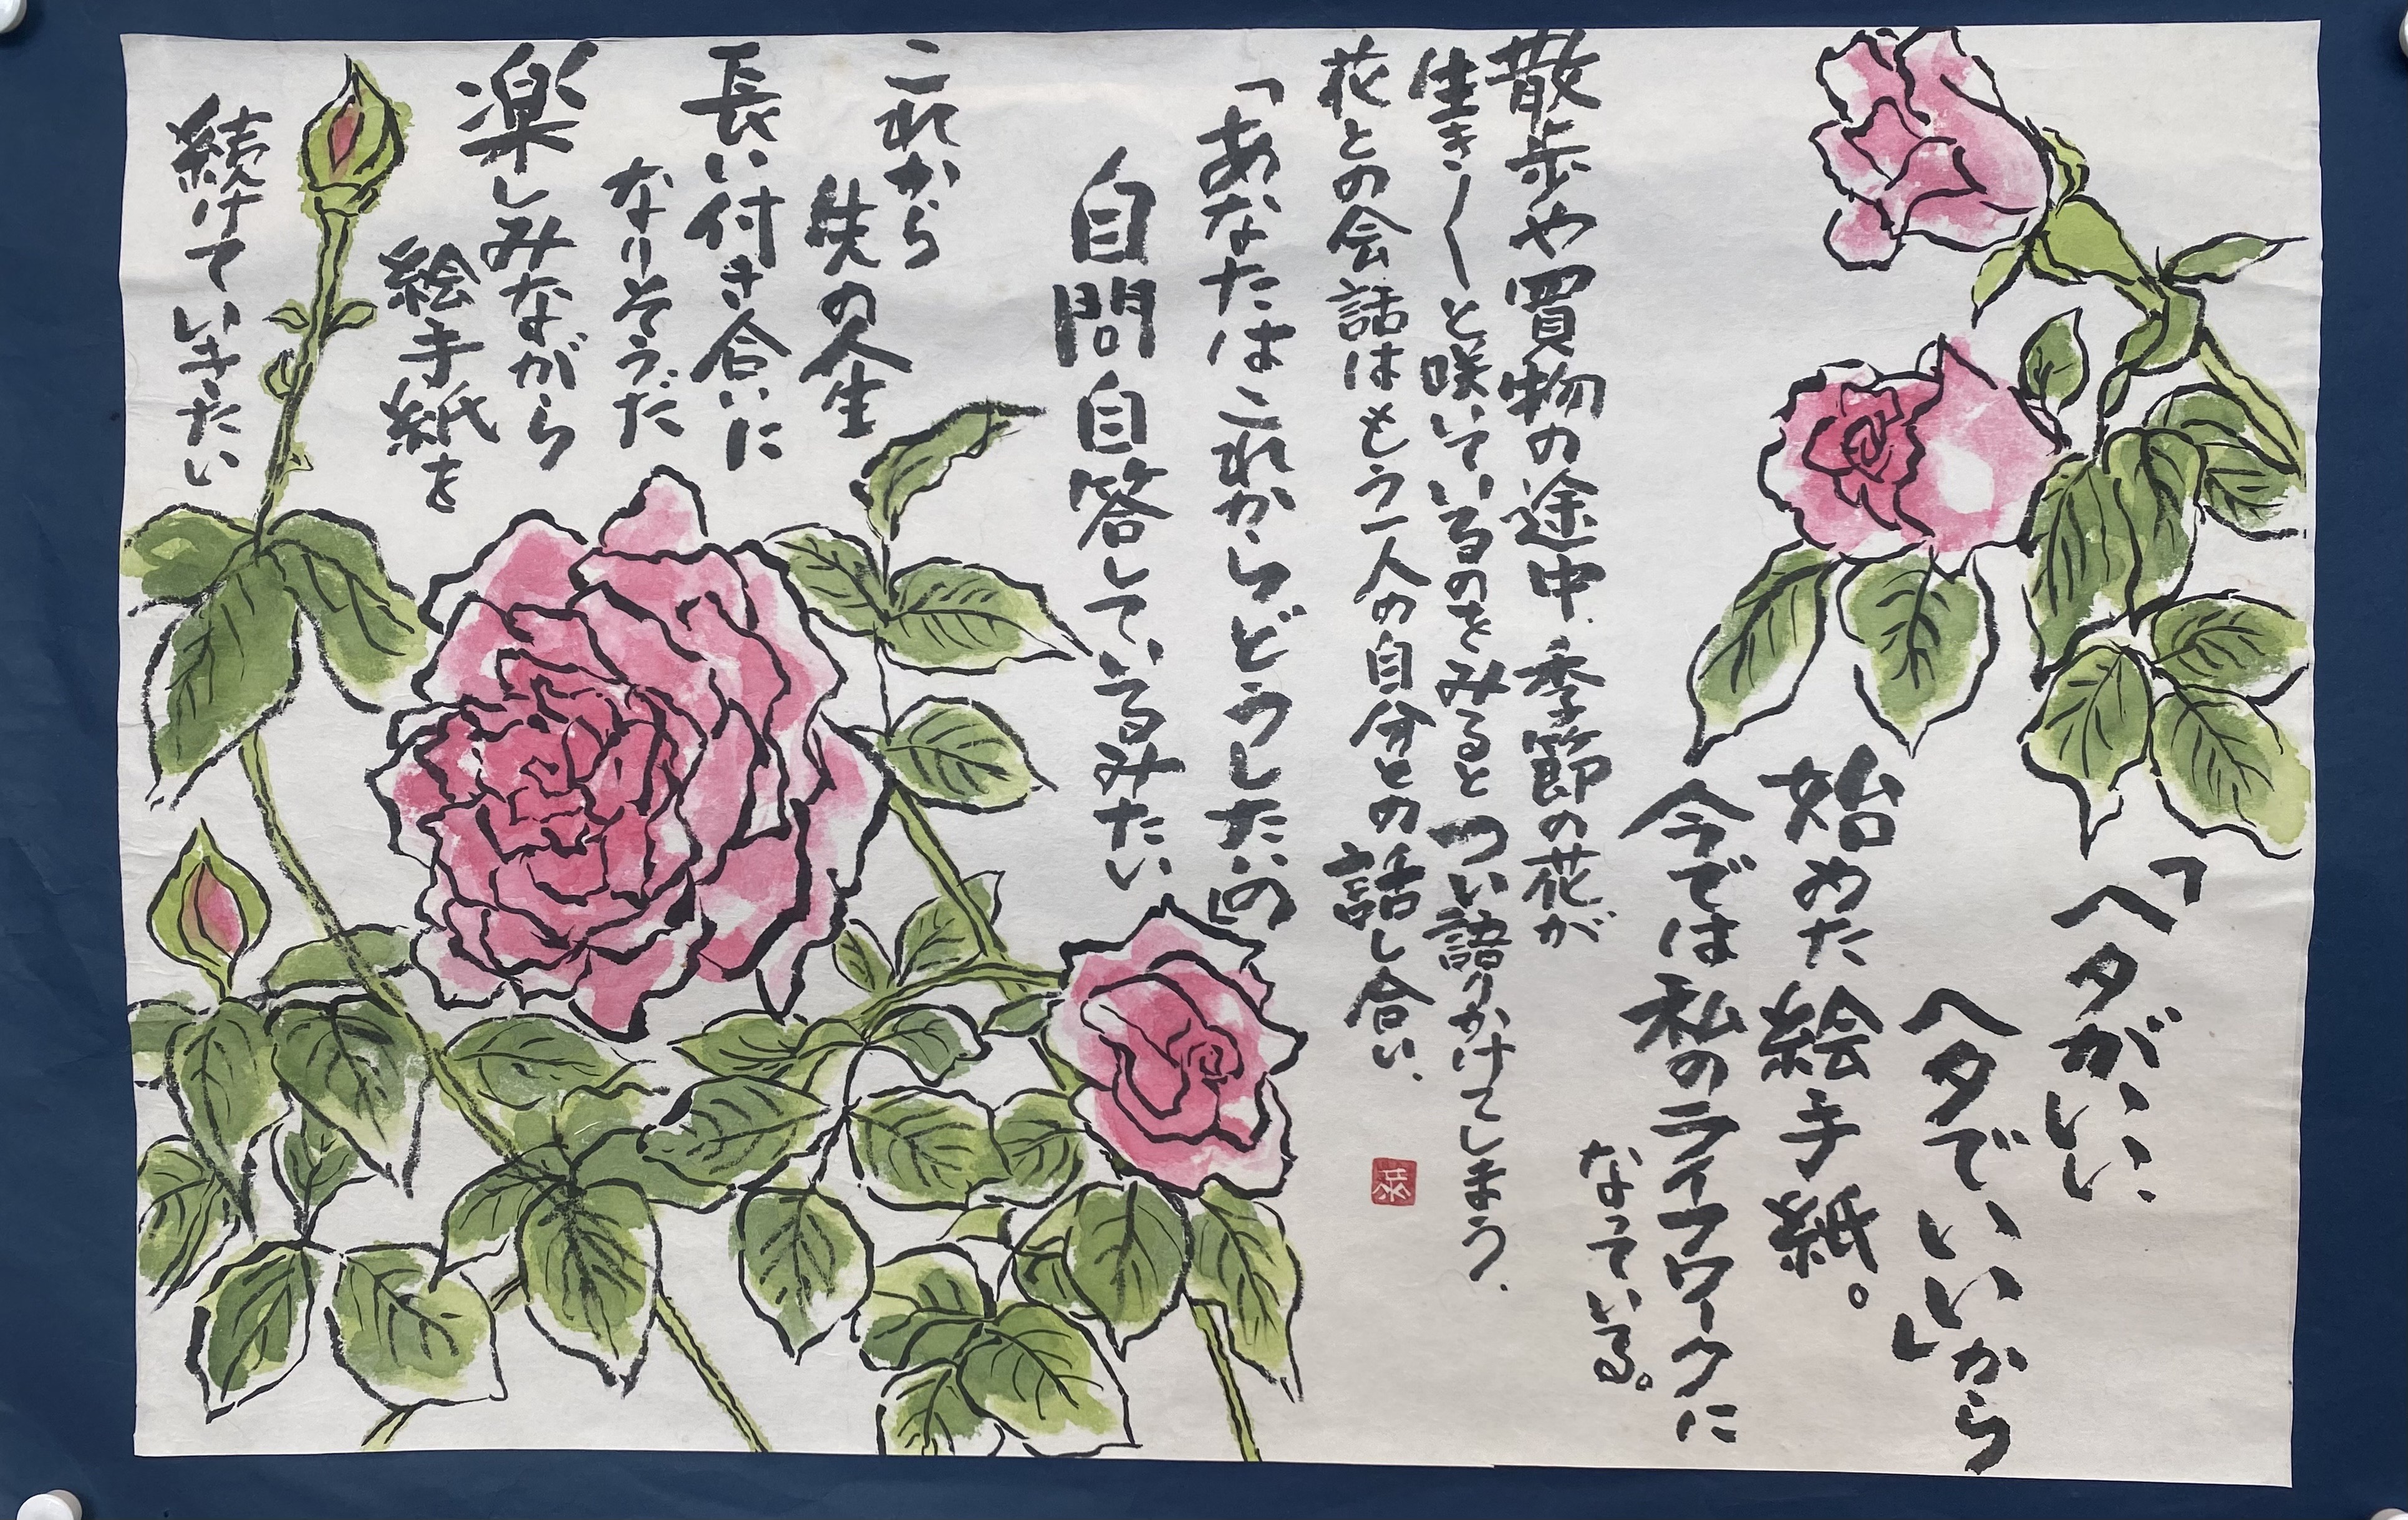 「ヘタがいい
ヘタでいいから」
始めた絵手紙。
今では私のライフワークに
なっている。
散歩や買物の途中、季節の花が
生き〱と咲いているのをみるとつい語りかけてしまう、
花との会話はもう一人の自分との話し合い、
「あなたはこれからどうしたいの」
自問自答しているみたい、
これから
先の人生
長い付き合いに
なりそうだ
楽しみながら
絵手紙を
続けていきたい